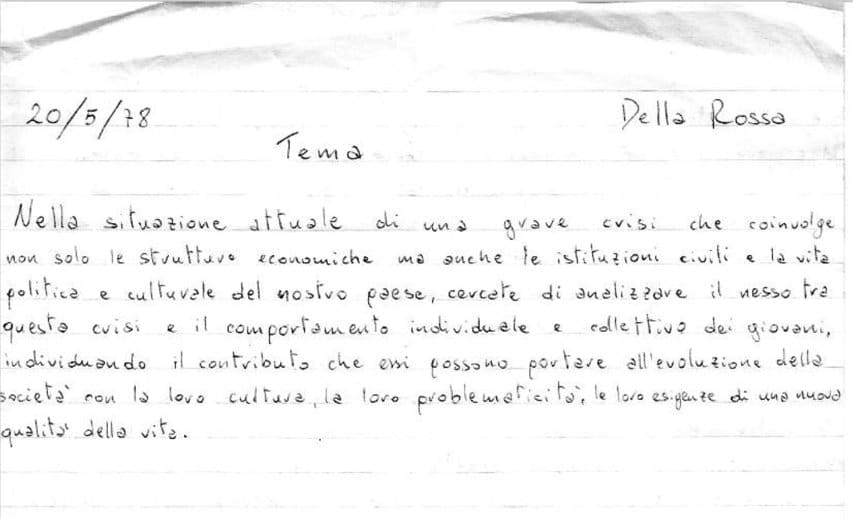 20/5/78 Della Rossa
Tema
Nella situazione attuale di una grave crisi che coinvolge
non solo le strutture economiche ma anche le istituzioni civili e la vita
politica e culturale del nostro paese, cercate di analizzare il nesso tra
questa crisi e il comportamento individuale e collettivo dei giovani,
individuando il contributo che essi possono portare all'evoluzione della
società con la loro cultura, la loro problematicità, le loro esigenze di una nuova
qualità della vita.